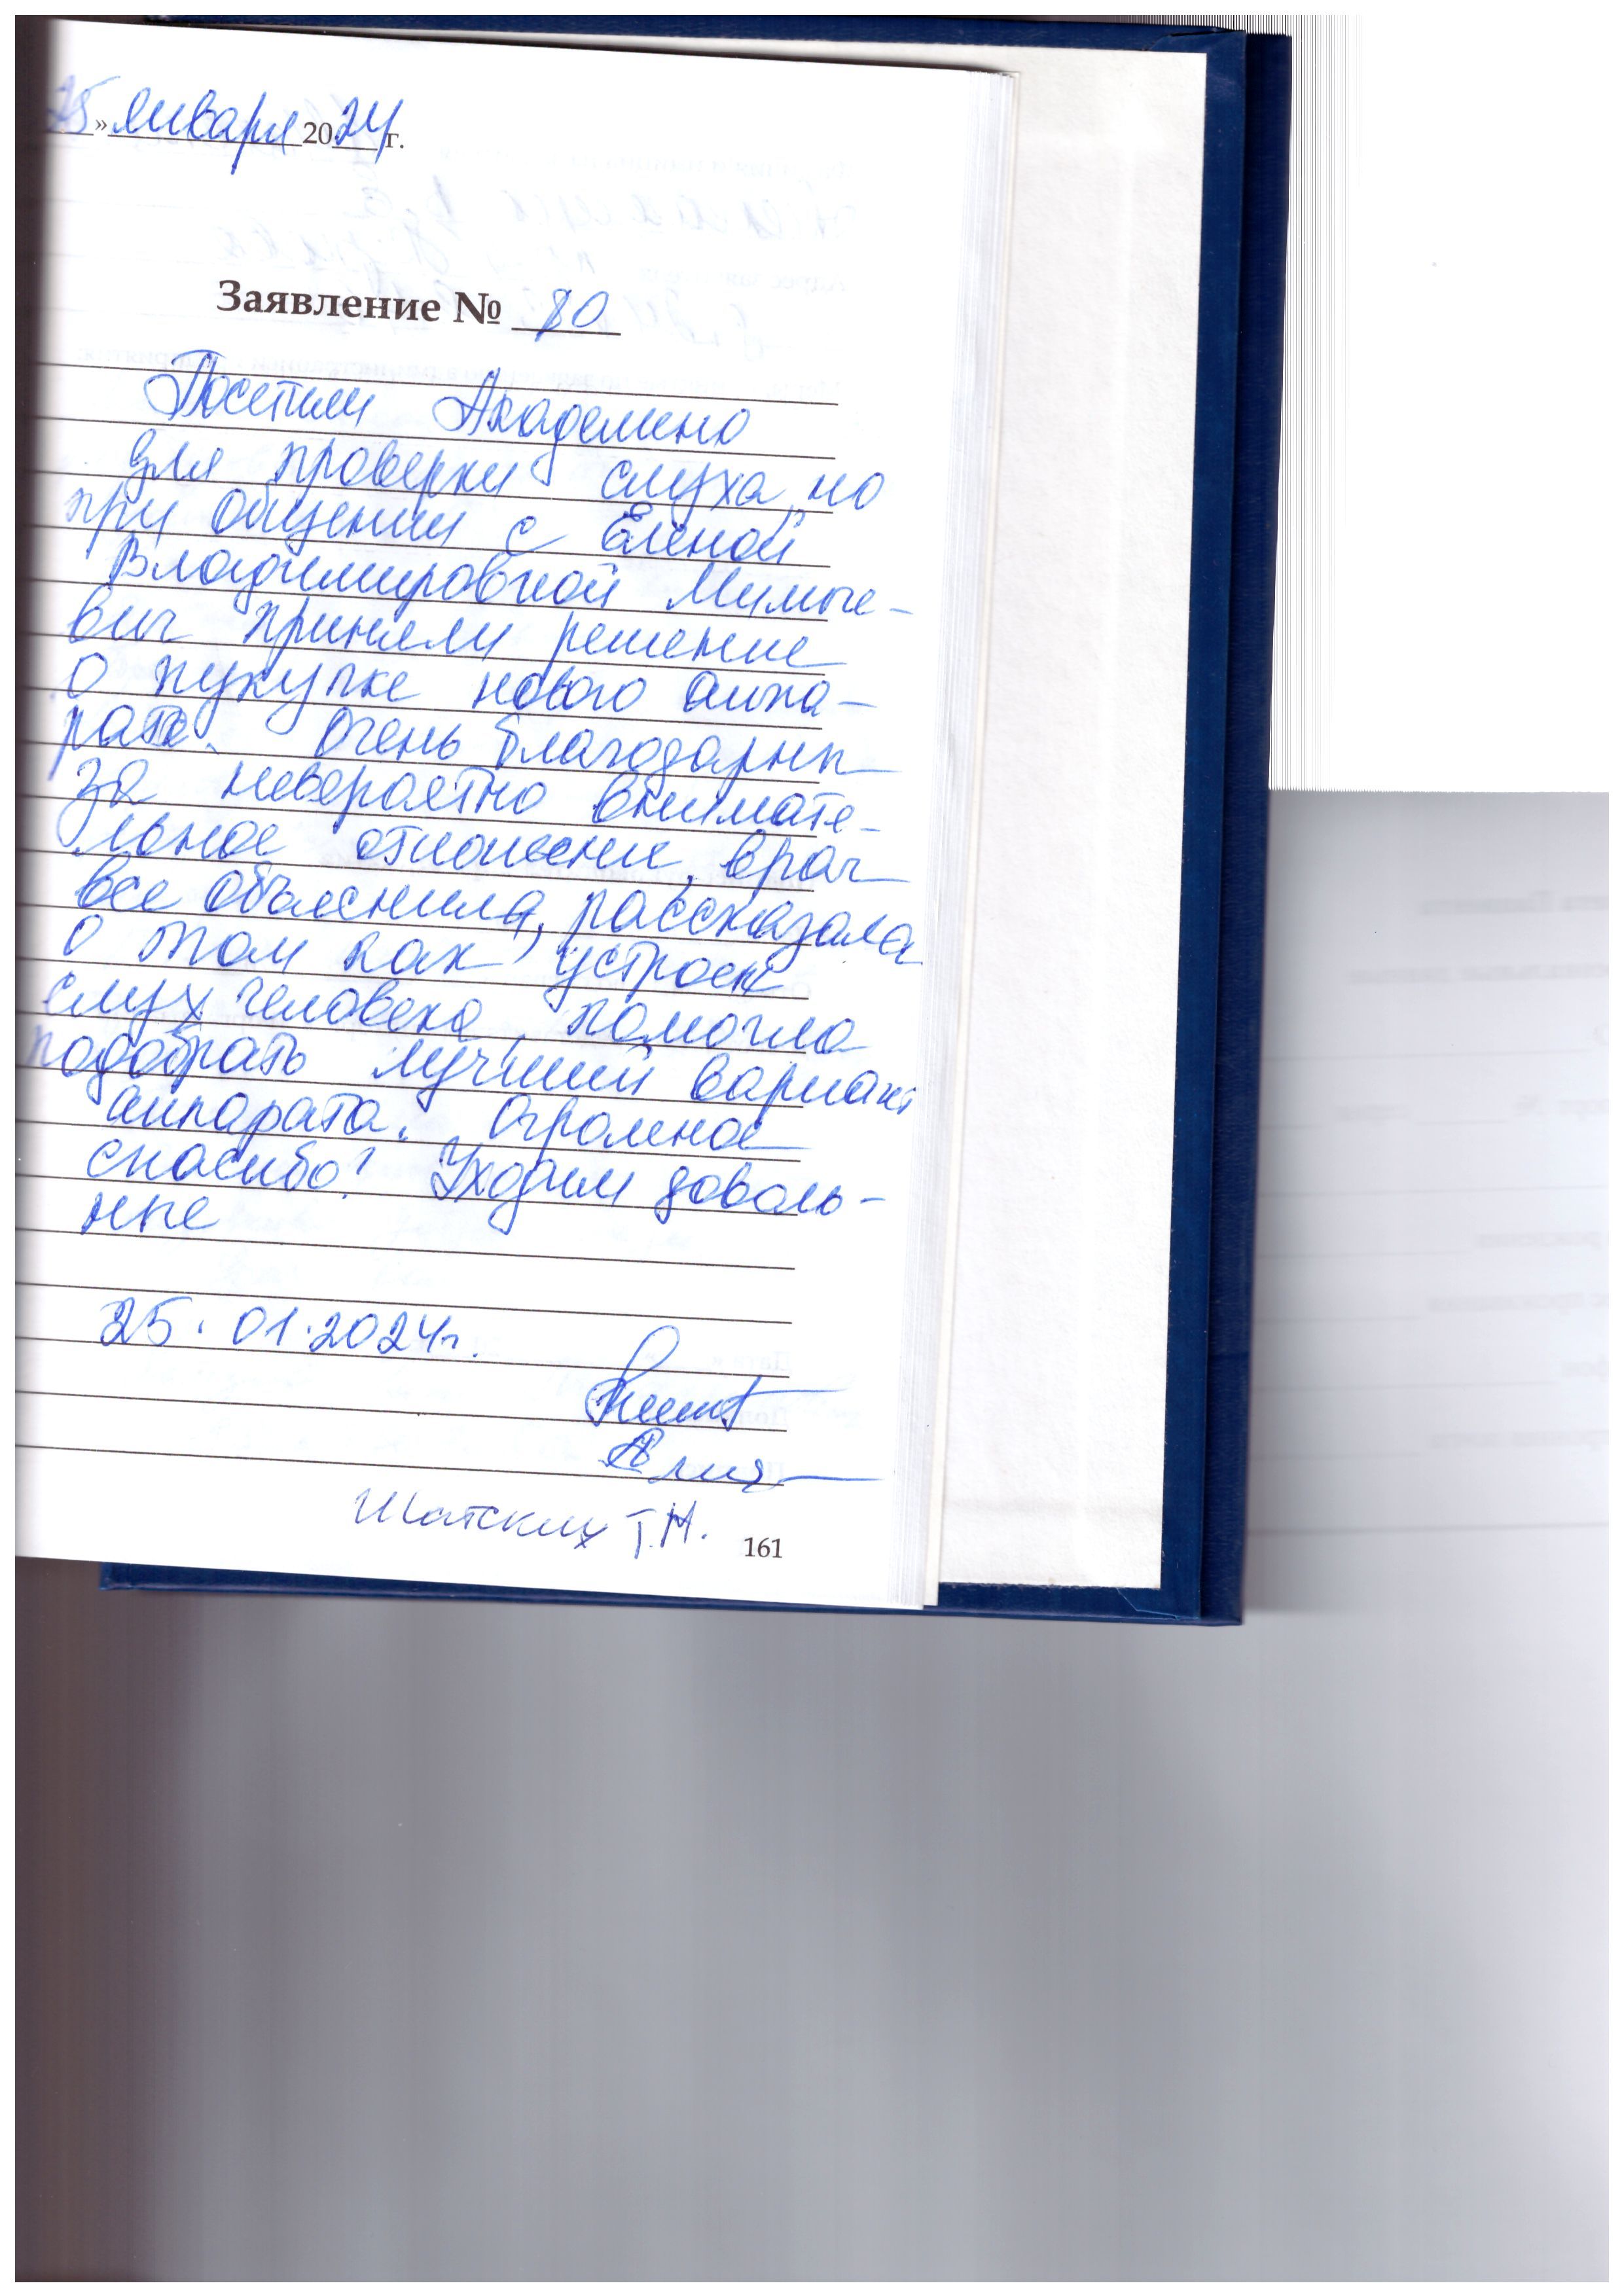 25» января 2024 г.
Заявление № 80
Посетили Академию
для проверки слуха, но
при общении с Еленой
Владимировной
вич приняли решение
о пукупке нового аппа-
рата. Очень благодарны
за невероятно внимате-
льное отношение, врач
все объяснила, рассказала
о том как устроен
слух человека помогла
подобрать лучший вариант
аппарата. Огромное
спасибо! Уходим доволь-
ные
25.01.2024г.
Шатских Т.Н.
161